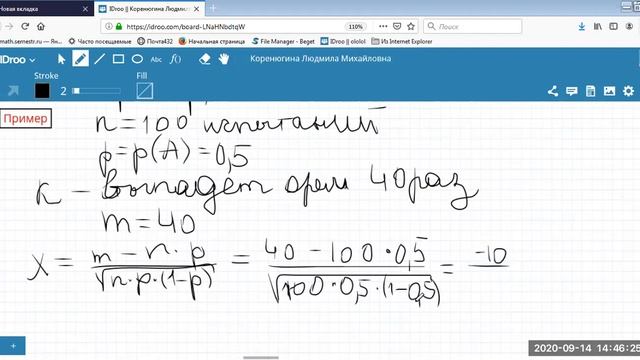 Новая вкладка
IDroo || Коренюгина Людмил
https://idroo.com/board-LNaHNbdtqW
110%
math.semestr.ru
Часто посещаемые
Почта432
Начальная страница
File Manager - Beget
IDroo || ololol
Из Internet Explorer
IDroo
Abc
f(x)
Коренюгина Людмила Михайловна
Stroke
Fill
2
Пример
n=100 испытаний
p=p(A)=0,5
К – выпадет орел 40 раз
m=40
X = (m – n·p)/√(n·p·(1–p)) = (40 – 100·0,5)/√(100·0,5·(1–0,5)) = -10
2020-09-14 14:46:25